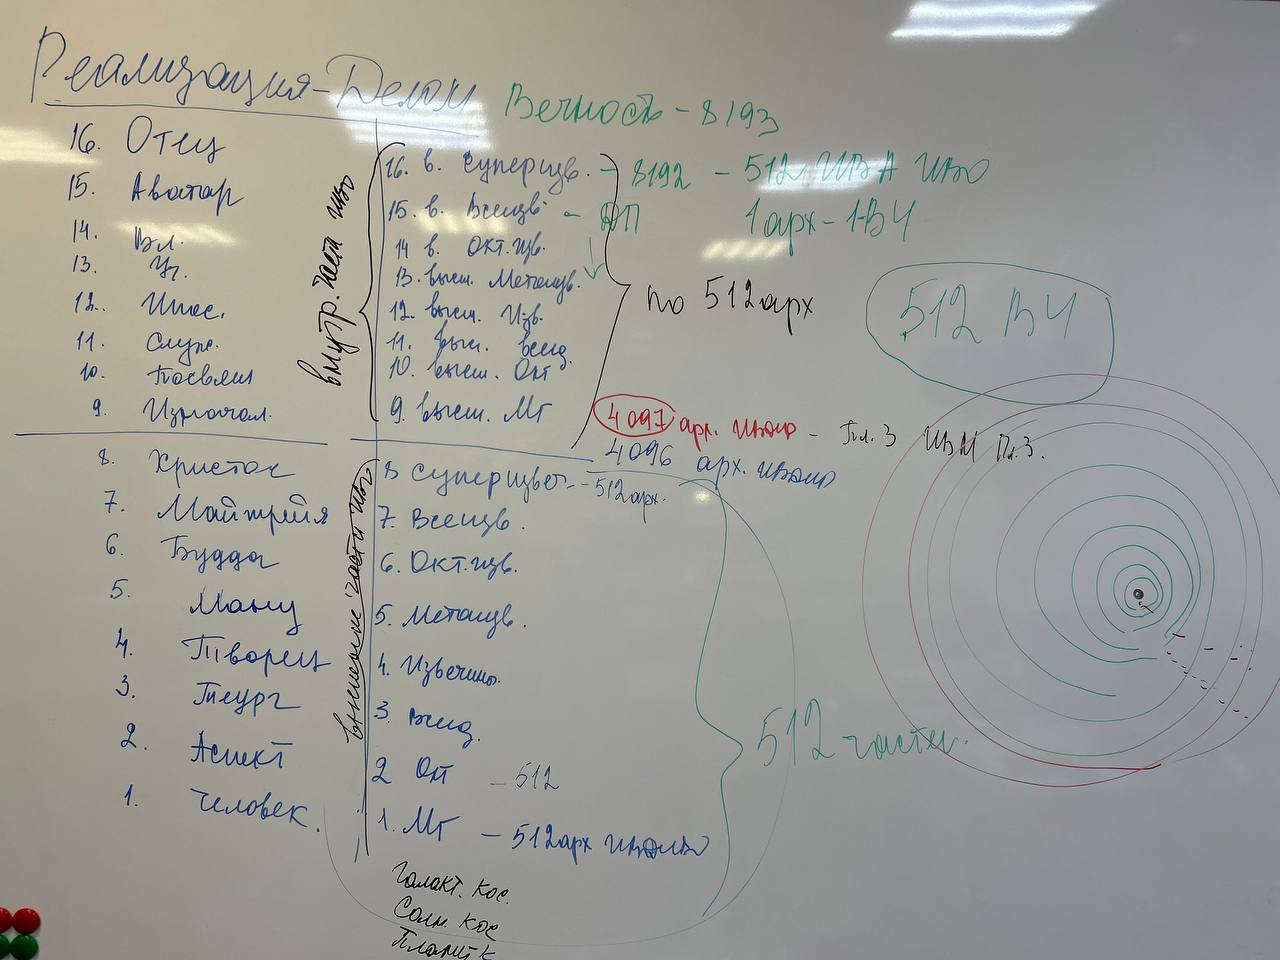 Реализация-Делом
Вечность - 8193
16. Отец
15. Аватар
14. Вл.
13. Уч.
12. Ипос.
11. Служ.
10. Посвящ
9. Изначал.
8. Христос
7. Майтрейя
6. Будда
5. Ману
4. Творец
3. Теург
2. Аспект
1. Человек.
внутр. части ИВО
16. в. Суперцв. - 8192 - 512 ИВА ИВО
15. в. Всецв - ДП 1арх - 1ВЧ
14 в. Окт.цв.
13. высш. Метацв.
12. высш. Изв.
11. высш. Всед.
10. высш. Окт
9. высш. Мг
по 512 арх
512 ВЧ
4097 арх. - Пл. З ИВМ Пл. З.
4096 арх.
внешние части ИВО
8 Суперцвет - 512арх.
7. Всецв.
6. Окт.цв.
5. Метацв.
4. Извечины.
3. Всед.
2 Окт - 512
1. Мг - 512арх
512 частей.
Галакт. кос.
Солн. кос
Планет К